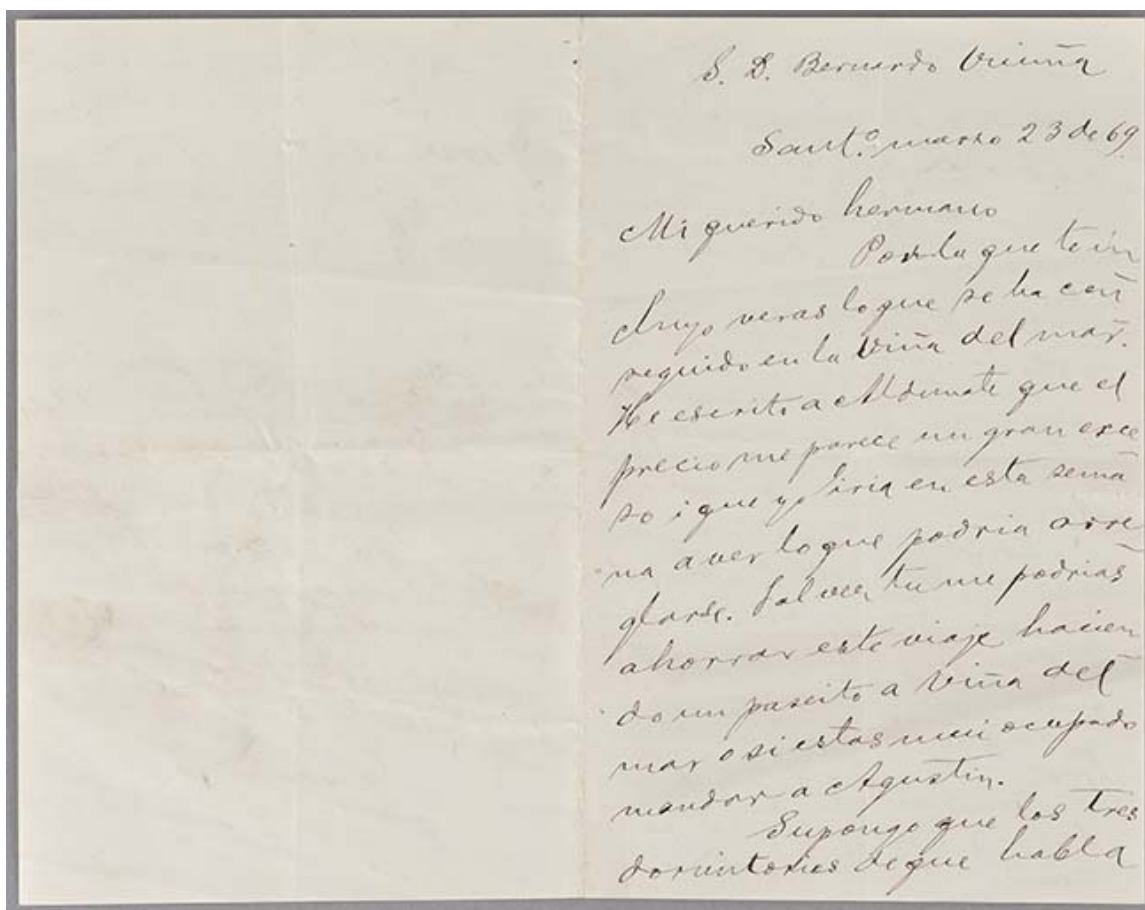 S. D. Bernardo Vicuña
Sant.º marzo 23 de 69.
Mi querido hermano
Por la que te in
cluyo veras lo que se ha con
seguido en la Viña del mar.
He escrito a Aldunate que el
precio me parece un gran exce
so i que yo iria en esta sema
na a ver lo que podria arre
glarse. Talvez tu me podrias
ahorrar este viaje hacien
do un paseito a Viña del
mar o si estas mui ocupado
mandar a Agustin.
Supongo que los tres
dormitorios de que habla